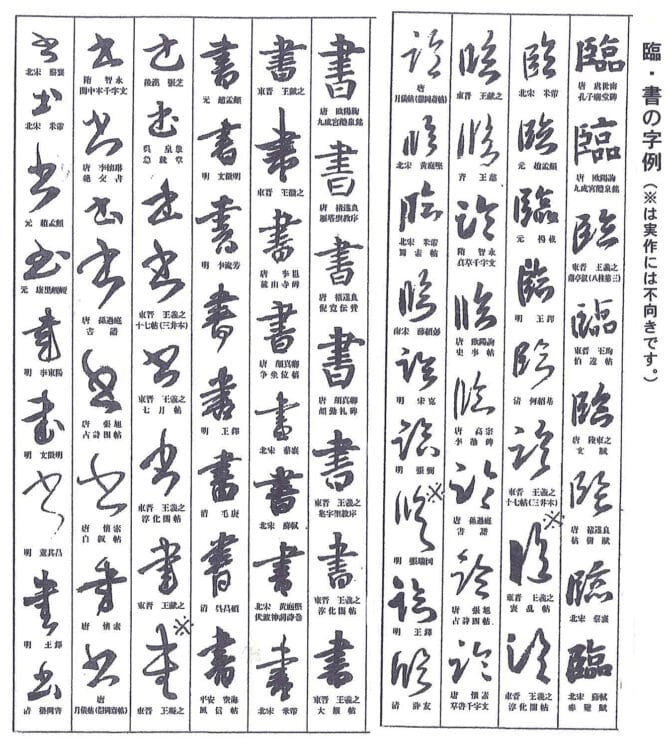 臨・書の字例(※は実作には不向きです。)
臨
唐 虞世南
孔子廟堂碑
臨
唐 欧陽詢
九成宮醴泉銘
臨
東晋 王羲之
蘭亭叙(八柱第三)
臨
東晋 王珣
伯遠帖
臨
唐 陸柬之
文賦
臨
唐 褚遂良
枯樹賦
臨
北宋 蔡襄
臨
北宋 蘇軾
臨
北宋 米芾
臨
元 趙孟頫
臨
元
臨
明 王鐸
臨
清 何紹基
臨
東晋 王羲之
十七帖(三井本)
※
臨
東晋 王羲之
喪乱帖
臨
東晋 王羲之
淳化閣帖
臨
東晋 王献之
臨
斉 王慈
臨
隋 智永
真草千字文
臨
唐 欧陽詢
史事帖
臨
唐 高宗
李勣碑
臨
唐 孫過庭
書譜
臨
唐 張旭
古詩四帖
臨
唐 懐素
草書千字文
臨
唐
月儀帖
臨
北宋 黄庭堅
臨
北宋 米芾
蜀素帖
臨
南宋 薛紹彭
臨
明 宋
臨
明 張弼
※
臨
明 張瑞図
臨
明 王鐸
臨
清 許友
書
唐 欧陽詢
九成宮醴泉銘
書
唐 褚遂良
雁塔聖教序
書
唐 褚遂良
倪寛伝賛
書
唐 顔真卿
顔勤礼碑
書
東晋 王羲之
集字聖教序
書
東晋 王羲之
淳化閣帖
書
東晋 王羲之
大観帖
書
東晋 王献之
書
東晋 王徽之
書
唐 李邕
麓山寺碑
書
唐 顔真卿
争坐位稿
書
北宋 蔡襄
書
北宋 蘇軾
書
北宋 黄庭堅
伏波神祠詩巻
書
北宋 米芾
書
元 趙孟頫
書
明 文徴明
書
明 李流芳
書
書
明 王鐸
書
清 毛庚
書
清 呉昌碩
書
平安 空海
風信帖
書
後漢 張芝
書
呉 皇象
急就章
書
書
東晋 王羲之
十七帖(三井本)
書
東晋 王羲之
七月帖
書
東晋 王羲之
淳化閣帖
書
東晋 王献之
※
書
東晋 王凝之
書
隋 智永
関中本千字文
書
唐 李懐琳
絶交書
書
書
唐 孫過庭
書譜
書
唐 張旭
古詩四帖
書
唐 懐素
自叙帖
書
唐 懐素
書
唐
月儀帖
書
北宋 蔡襄
書
北宋 米芾
書
元 趙孟頫
書
元 康里巎巎
書
明 李東陽
書
明 文徴明
書
明 董其昌
書
明 王鐸
書
清